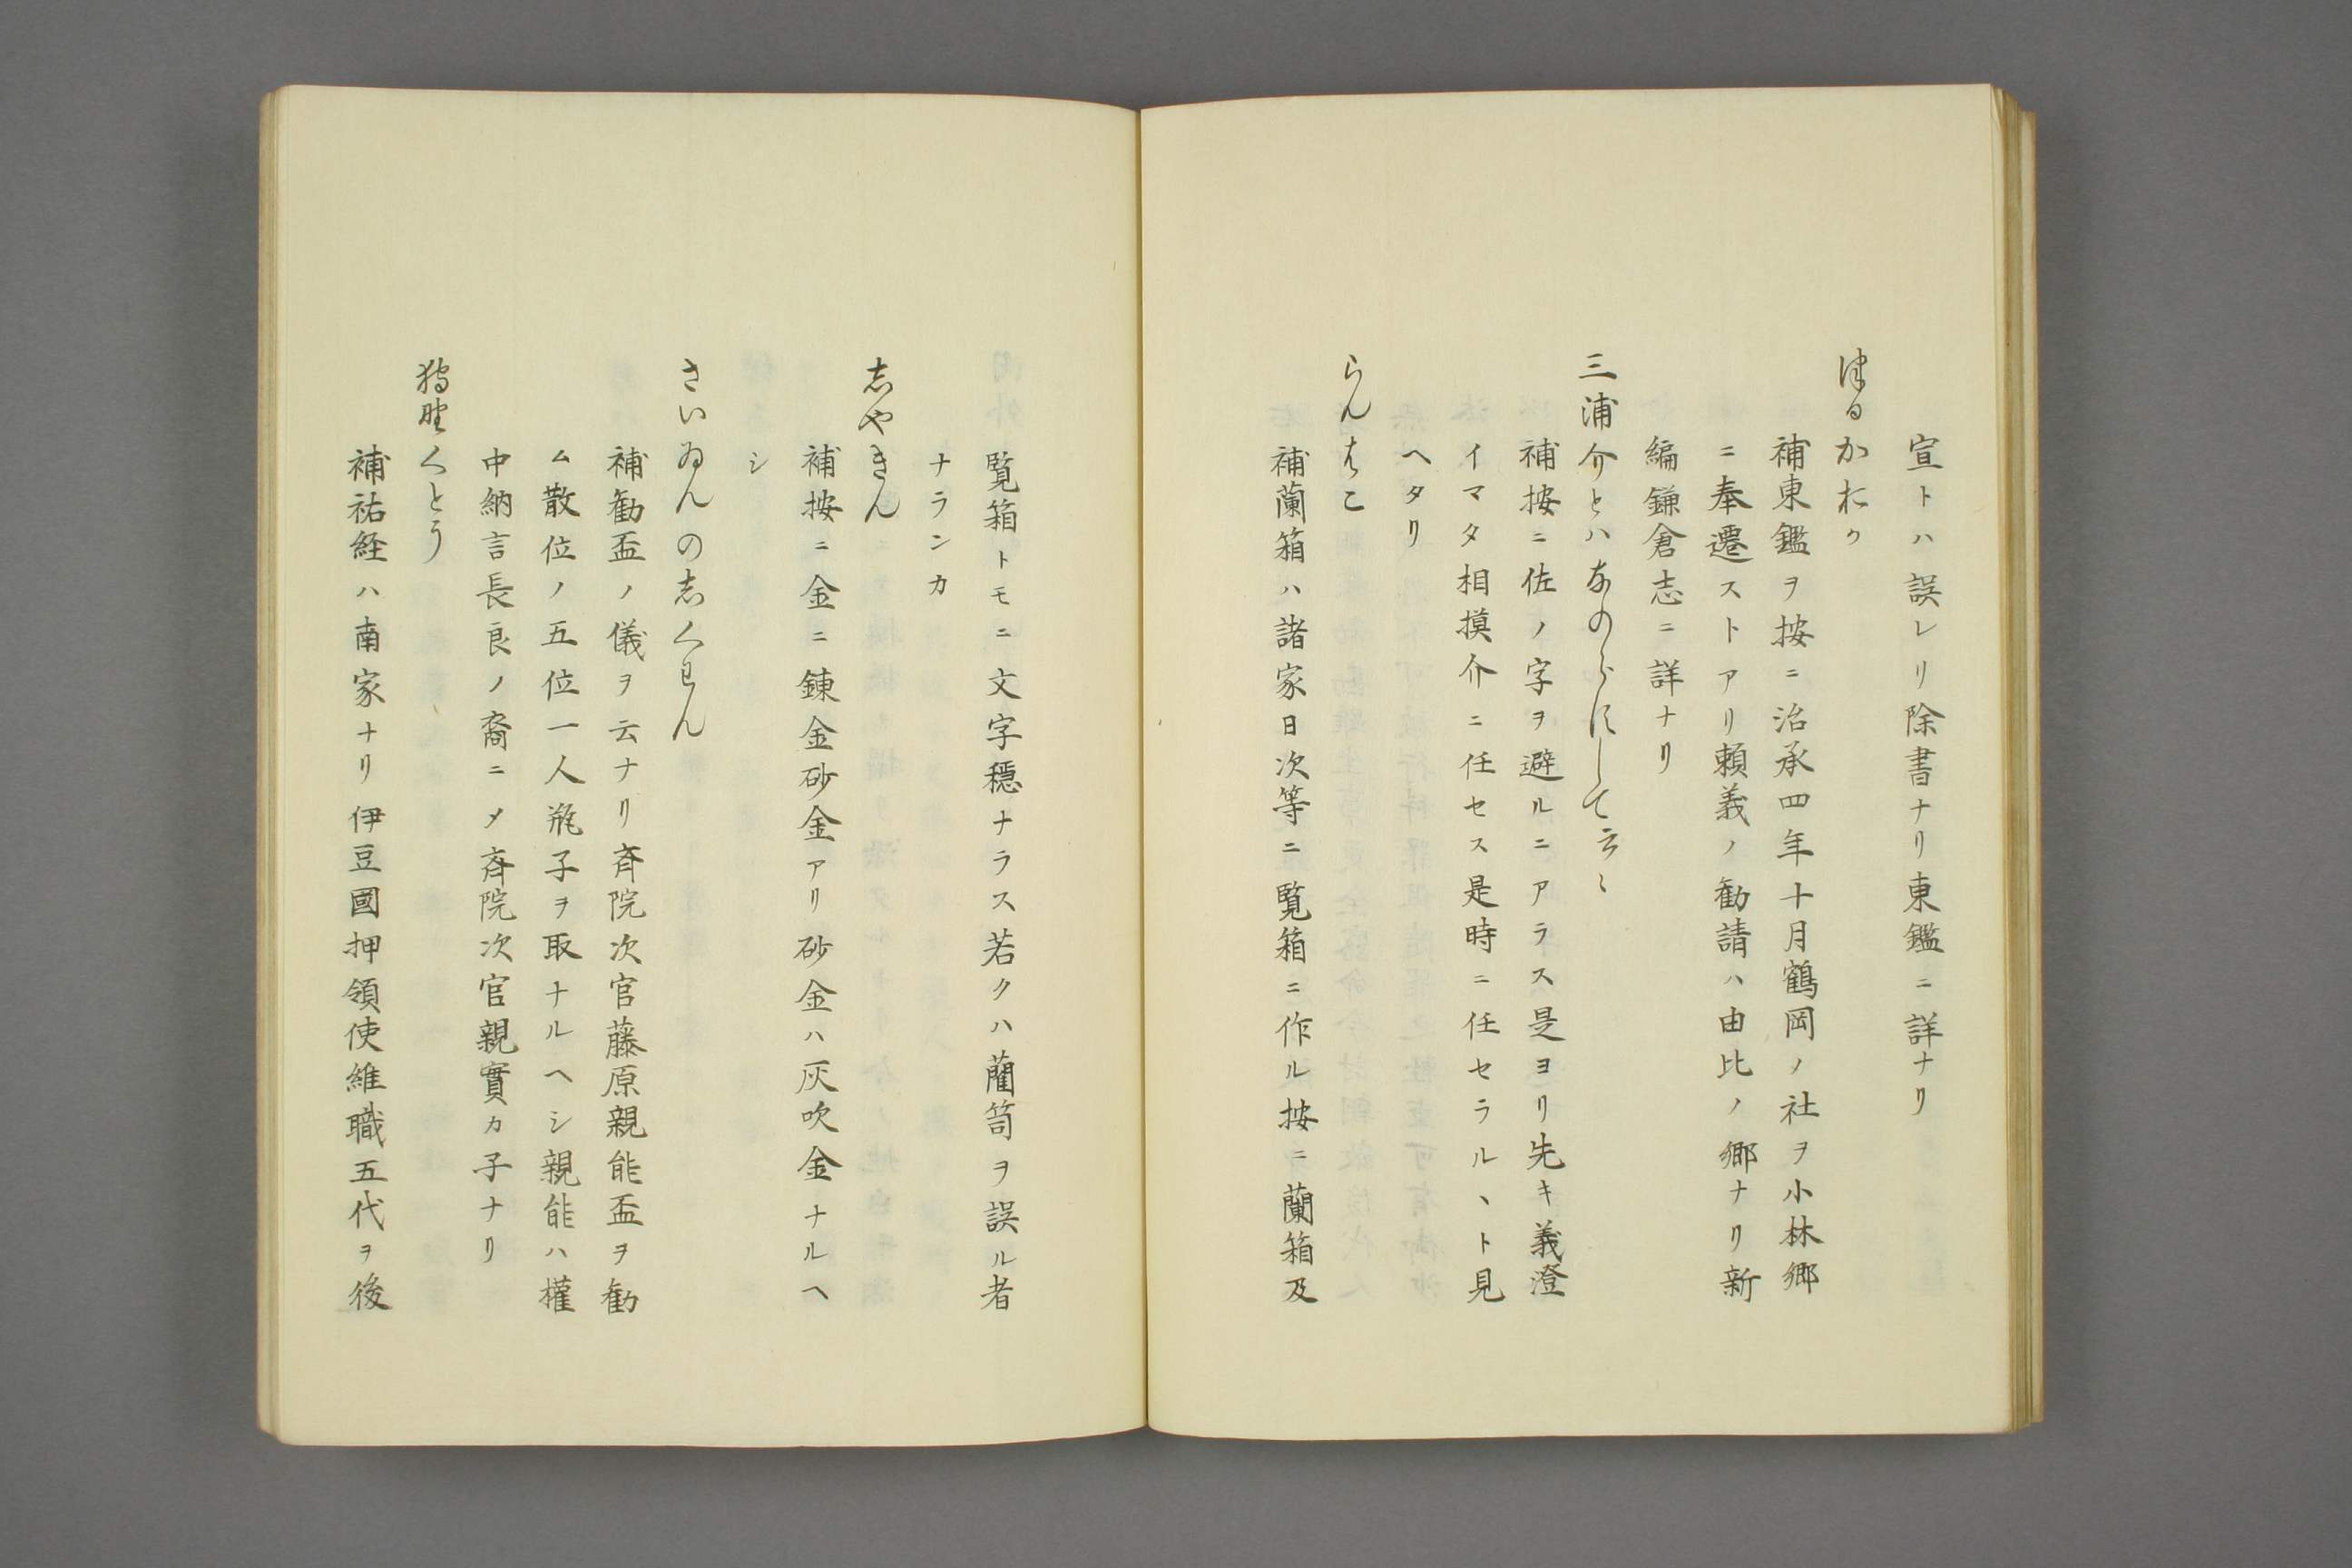 宣トハ誤レリ除書ナリ東鑑ニ詳ナリ
つるかおか
補東鑑ヲ按ニ治承四年十月鶴岡ノ社ヲ小林郷
ニ奉遷ストアリ頼義ノ勧請ハ由比ノ郷ナリ新
編鎌倉志ニ詳ナリ
三浦介とハなのらすして云〻
補按ニ佐ノ字ヲ避ルニアラス是ヨリ先キ義澄
イマタ相摸介ニ任セス是時ニ任セラルヽト見
ヘタリ
らんはこ
補蘭箱ハ諸家日次等ニ覧箱ニ作ル按ニ蘭箱及
覧箱トモニ文字穏ナラス若クハ藺笥ヲ誤ル者
ナランカ
志やきん
補按ニ金ニ錬金砂金アリ砂金ハ灰吹金ナルヘ
シ
さいゐんの志くわん
補勧盃ノ儀ヲ云ナリ斉院次官藤原親能盃ヲ勧
ム散位ノ五位一人瓶子ヲ取ナルヘシ親能ハ權
中納言長良ノ裔ニメ斉院次官親實カ子ナリ
狩野くとう
補祐経ハ南家ナリ伊豆國押領使維職五代ヲ後